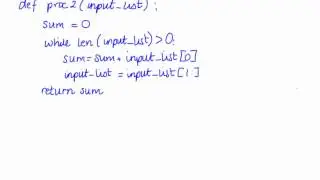 def proc2(input_list):
sum = 0
while len(input_list)>0:
sum=sum+input_list[0]
input_list = input_list[1:]
return sum